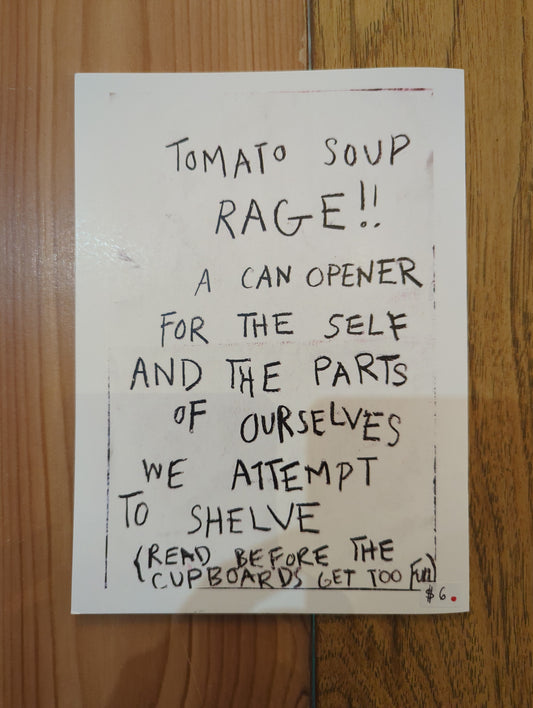 TOMATO SOUP
RAGE!!
A CAN OPENER
FOR THE SELF
AND THE PARTS
OF OURSELVES
WE ATTEMPT
TO SHELVE
(READ BEFORE THE
CUPBOARDS GET TOO )
$6.